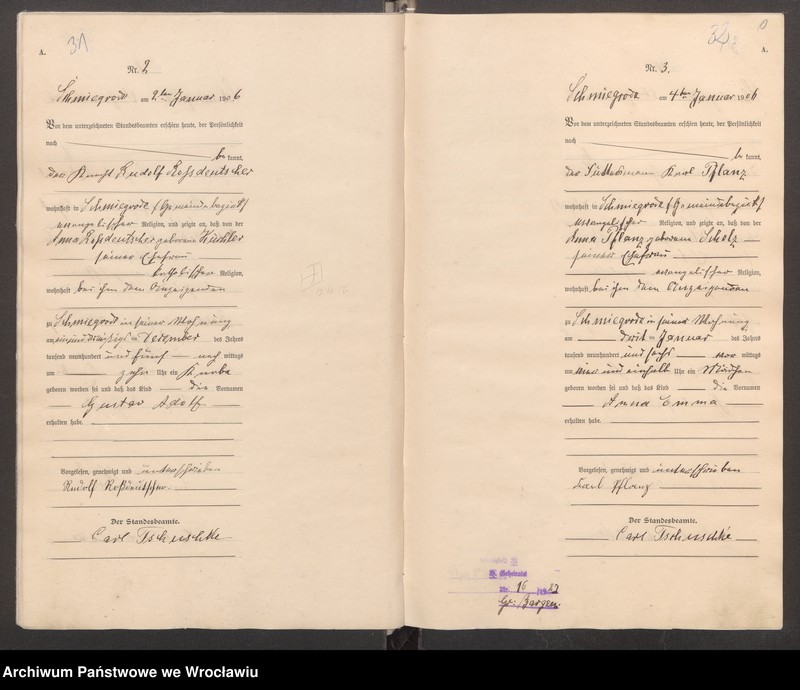 A.
31
Nr. 2
Schmiegrode am 2ten Januar 1906
Vor dem unterzeichneten Standesbeamten erschien heute, der Persönlichkeit
nach
be kannt,
der Rudolf Roßdeutscher
wohnhaft in Schmiegrode /Gemeindebezirk/
evangelischer Religion, und zeigte an, daß von der
Anna Roßdeutscher geborenen
seiner Ehefrau
katholischer Religion,
wohnhaft bei ihm dem Anzeigenden
zu Schmiegrode in seiner Wohnung
am einunddreißigsten Dezember des Jahres
tausend neunhundert und fünf nach mittags
um zehn Uhr ein Knabe
geboren worden sei und daß das Kind die Vornamen
Gustav Adolf
erhalten habe.
Vorgelesen, genehmigt und unterschrieben
Rudolf Roßdeutscher.
Der Standesbeamte.
Carl Tschuschke
A.
Nr. 3.
Schmiegrode am 4ten Januar 1906
Vor dem unterzeichneten Standesbeamten erschien heute, der Persönlichkeit
nach
be kannt,
der Karl Pflanz
wohnhaft in Schmiegrode /Gemeindebezirk/
evangelischer Religion, und zeigte an, daß von der
Anna Pflanz geborenen Scholz
seiner Ehefrau
evangelischer Religion,
wohnhaft bei ihm dem Anzeigenden
zu Schmiegrode in seiner Wohnung
am dritten Januar des Jahres
tausend neunhundert und sechs vor mittags
um und einhalb Uhr ein Mädchen
geboren worden sei und daß das Kind die Vornamen
Anna Emma
erhalten habe.
Vorgelesen, genehmigt und unterschrieben
Karl Pflanz
Der Standesbeamte.
Carl Tschuschke
Geheiratet
Nr. 16
Gr. Bargen.
Archiwum Państwowe we Wrocławiu